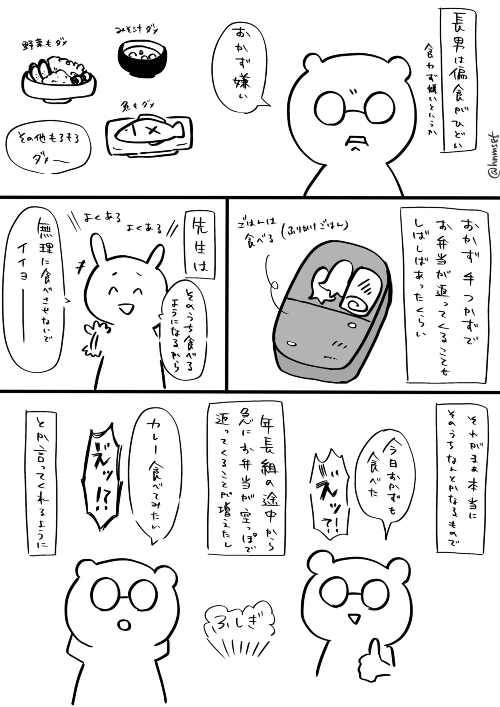 長男は偏食がひどい
食わず嫌いというか
@hnmset
おかず嫌い
みそ汁ダメ
野菜もダメ
魚もダメ
その他もろもろ
ダメー
おかず手つかずで
お弁当が返ってくることも
しばしばあったくらい
(ふりかけごはん)
ごはんは
食べる
先生は
よくある
よくある
そのうち食べる
ようになるから
無理に食べさせないで
イイヨー
それがまぁ本当に
そのうちなんとかなるもので
今日おかずも
食べた
えッ!?
年長組の途中から
急にお弁当が空っぽで
返ってくることが増えたし
ふしぎ
カレー食べてみたい
えッ!?
とか言ってくれるように